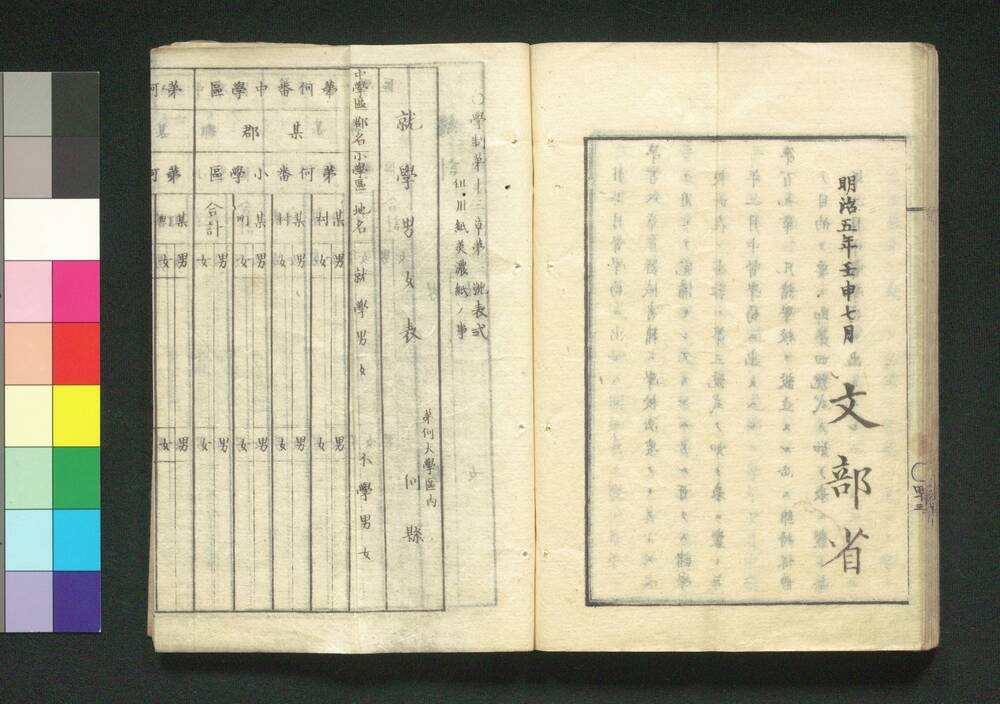 明治五年壬申七月
文部省
○學制第十三章第一號表式
但シ用紙美濃紙ノ事
第何大學區内
就學男女表 何縣
中學區 郡名 小學區 地名 就學男女 不學男女
第何番中學區
某郡
第何番小學區
某村 男 女 男 女
某村 男 女 男 女
某町 男 女 男 女
合計 男 女 男 女
第何
某
第何
某 男 女 男 女